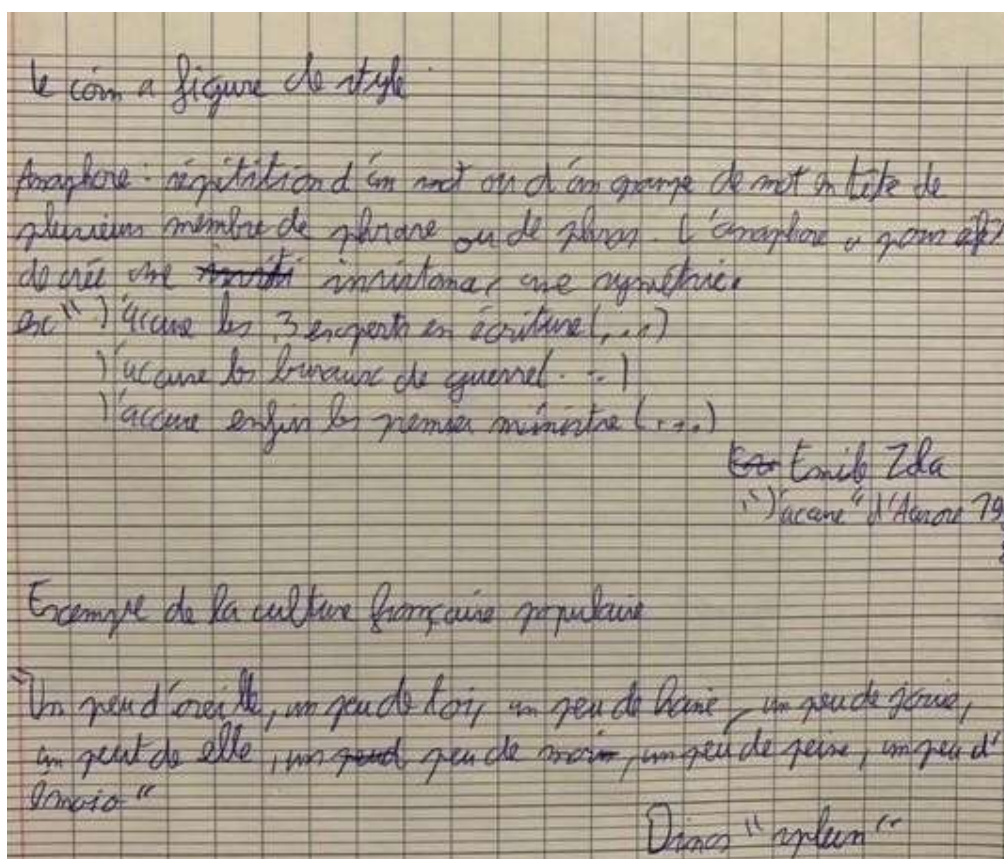 le coin a figure de style
Anaphore : répitition d'un mot ou d'un groupe de mot en tête de
plusieurs membre de phrase ou de phras. L'anaphore a pour
de crée une insistance, une symétrie.
ex " J'accuse les 3 experts en écriture (...)
J'accuse les bureaux de guerre (...)
J'accuse enfin les premier ministre (...)
Emile Zola
"J'accuse" d'Aurore 19
Exemple de la culture française populaire
"Un peu d'oreille, un peu de toi, un peu de haine, un peu de joie,
un peut de elle, un peu de moi, un peu de peine, un peu d'
émoio"
Dinos "spleen"